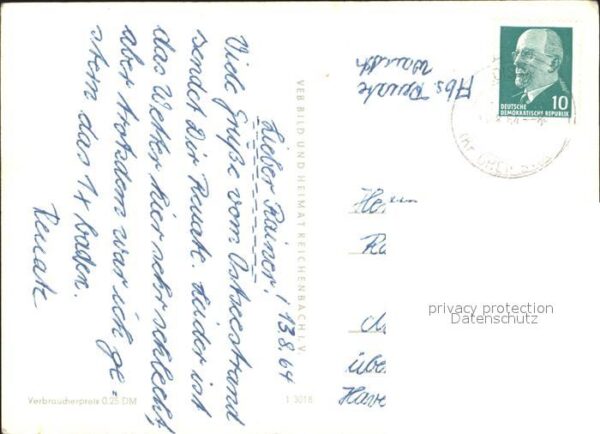 Lieber Rainer! 13.8.64
Viele Grüße vom Ostseestrand
sendet Dir Renate. Leider ist
das Wetter hier sehr schlecht,
aber trotzdem war ich ge-
stern das 1x baden.
Renate
VEB BILD UND HEIMAT REICHENBACH I. V.
Verbraucherpreis 0,25 DM
1 3018
Abs. Renate
DEUTSCHE
DEMOKRATISCHE REPUBLIK
10
He
Ra
privacy protection
Datenschutz
übe
Have